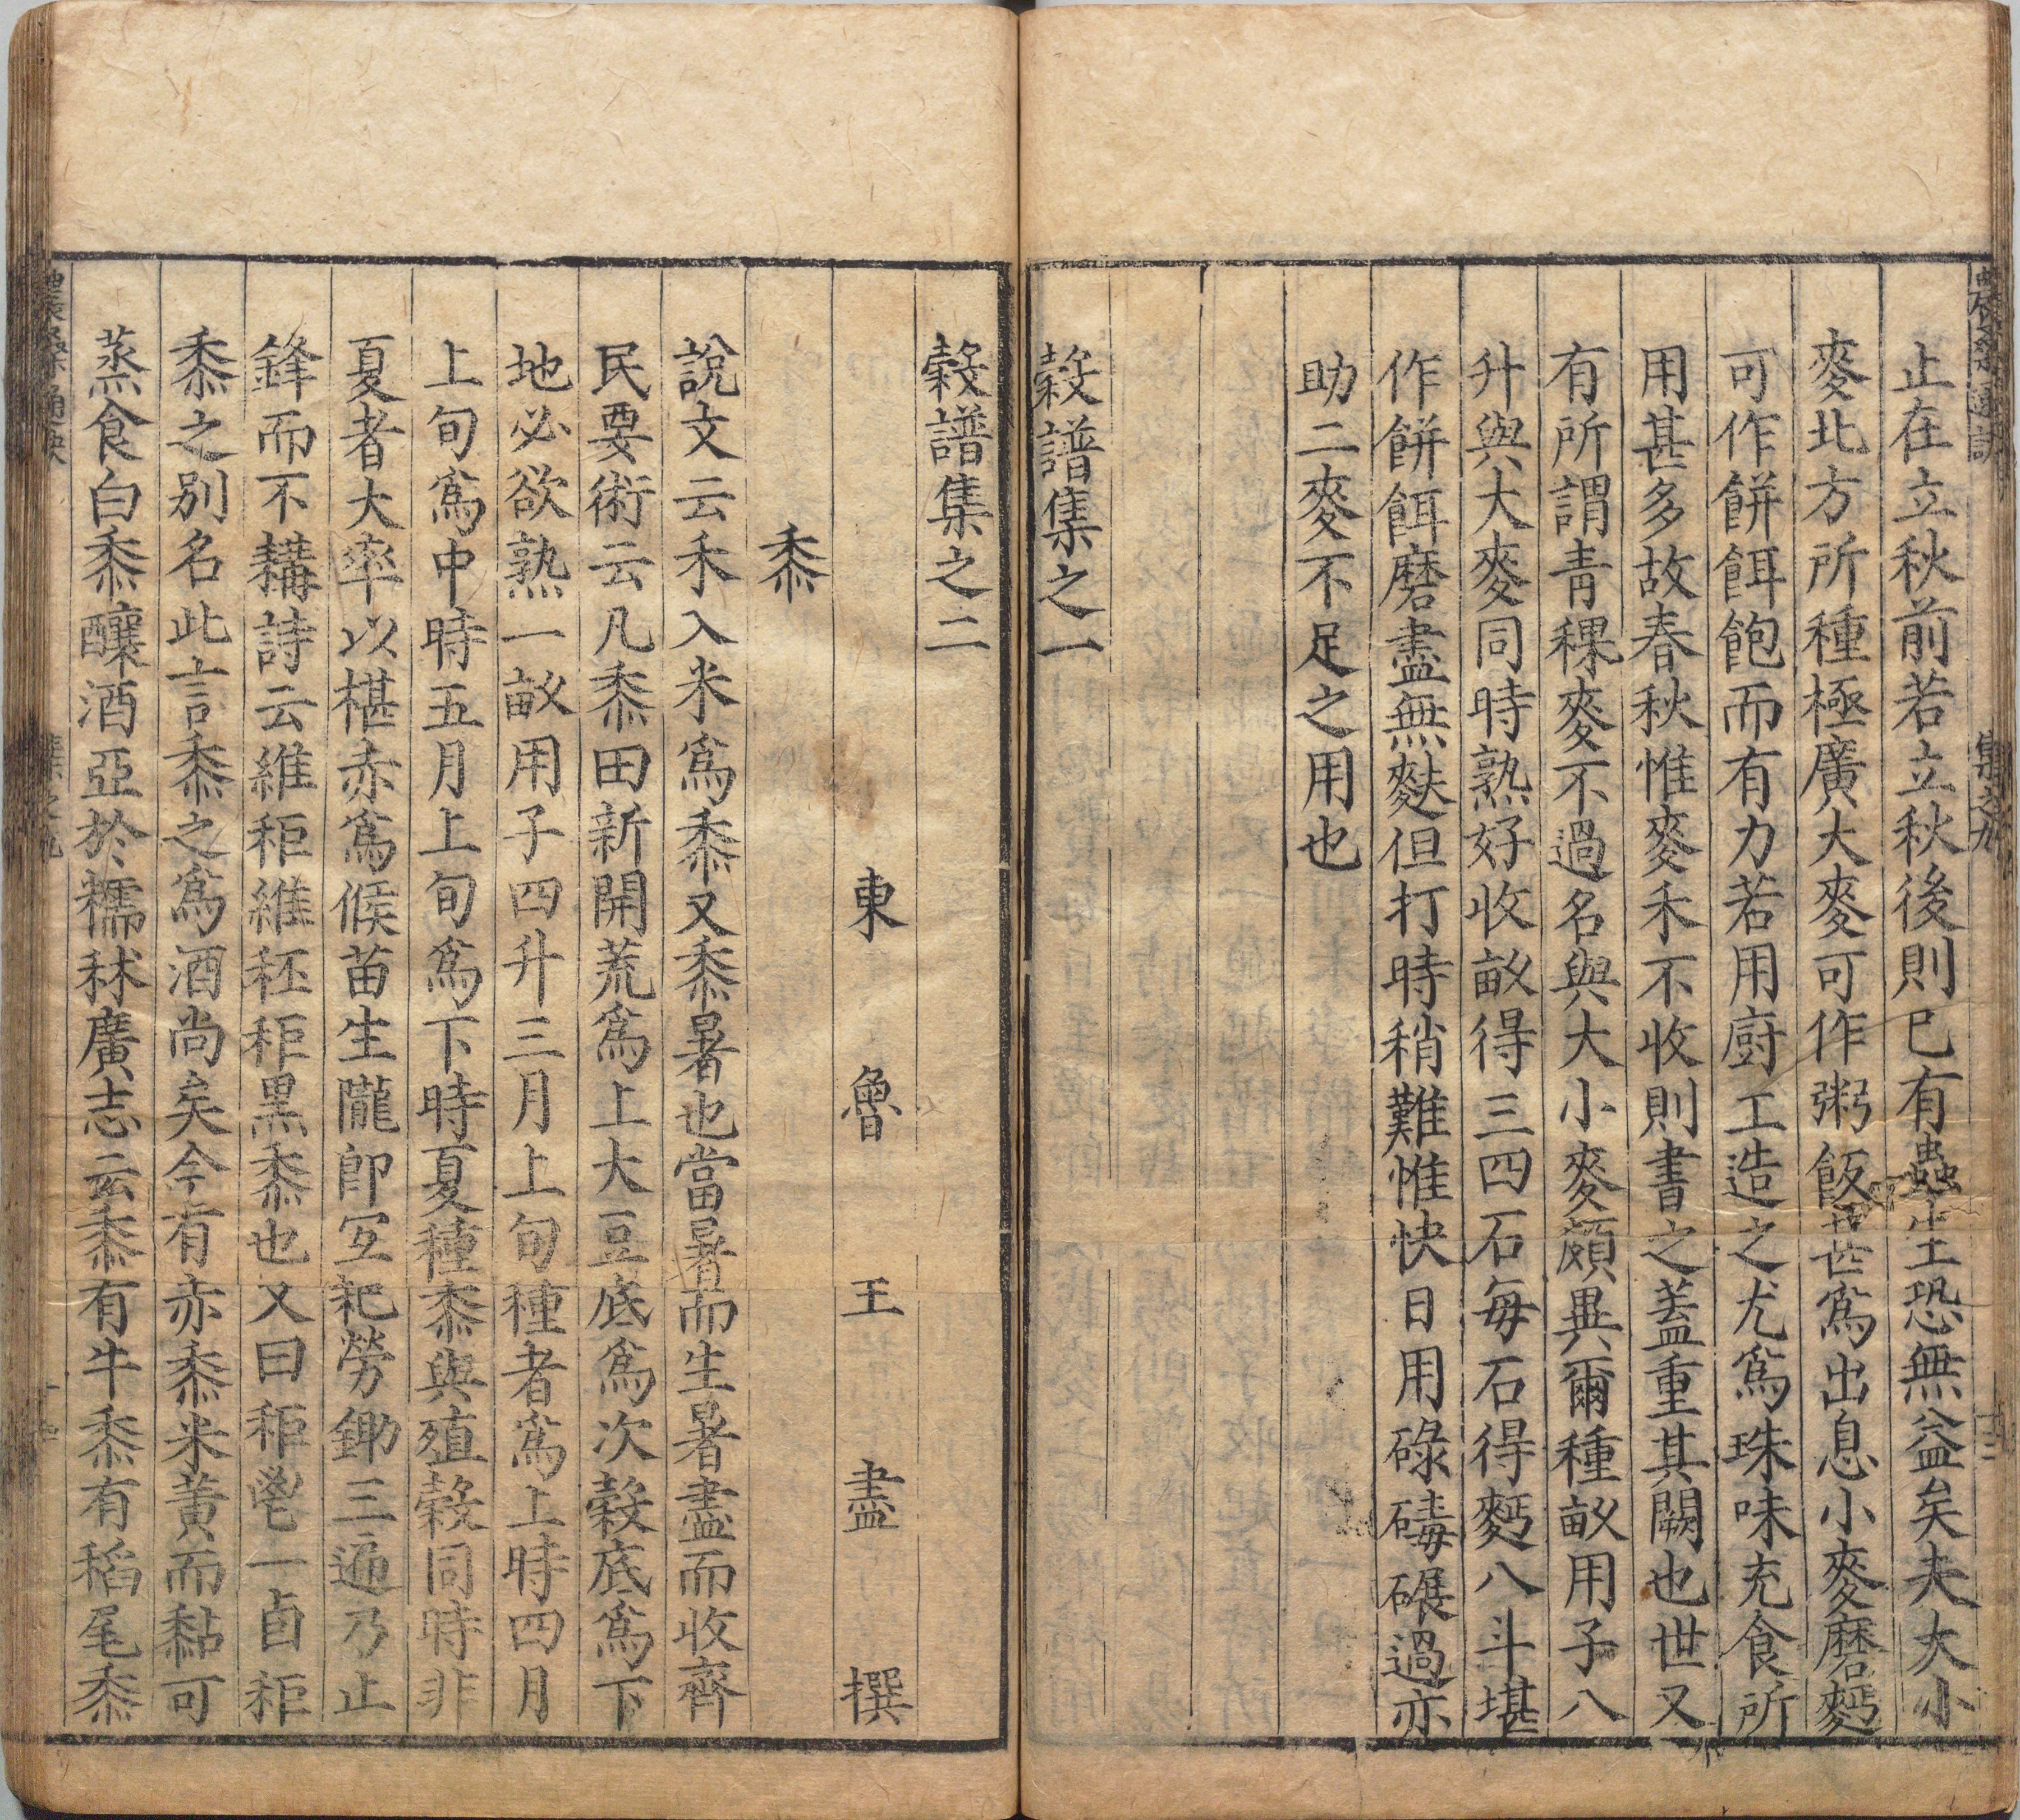 止在立秋前若立秋後則已有蟲生恐無益矣夫大小
麥北方所種極廣大麥可作粥飯甚爲出息小麥磨麪
可作餅餌飽而有力若用廚工造之尤爲珠味充食所
用甚多故春秋惟麥禾不收則書之蓋重其闕也世又
有所謂青稞麥不過名與大小麥頗異爾種畝用子八
升與大麥同時熟好收畝得三四石每石得麪八斗堪
作餅餌磨盡無麩但打時稍難惟快日用碌碡碾過亦
助二麥不足之用也
穀譜集之一
穀譜集之二
東魯王盡撰
黍
說文云禾入米爲黍又黍暑也當暑而生暑盡而收齊
民要術云凡黍田新開荒爲上大豆底爲次穀底爲下
地必欲熟一畝用子四升三月上旬種者爲上時四月
上旬爲中時五月上旬爲下時夏種黍與殖穀同時非
夏者大率以椹赤爲候苗生隴即宜耙勞鋤三遍乃止
鋒而不耩詩云維秬維秠秬黑黍也又曰秬鬯一卣秬
黍之别名此言黍之爲酒尚矣今有赤黍米黃而黏可
蒸食白黍釀酒亞於糯秫廣志云黍有牛黍有稻尾黍